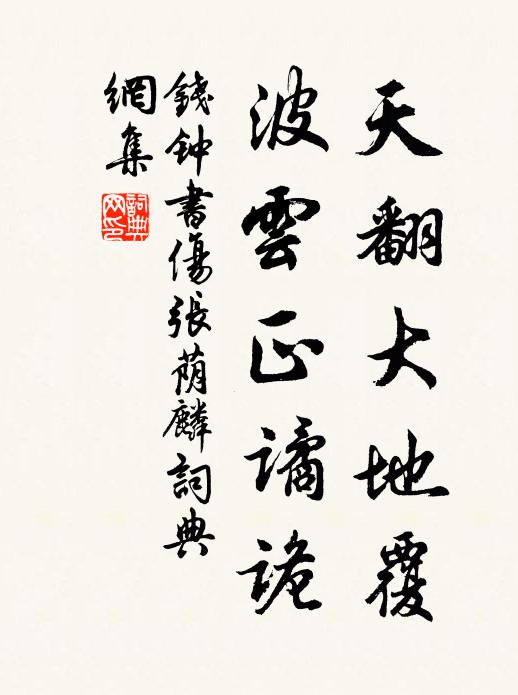 天翻大地覆
波雲正譎詭
錢钟書傷張蔭麟詞典
網集
詞典
网印